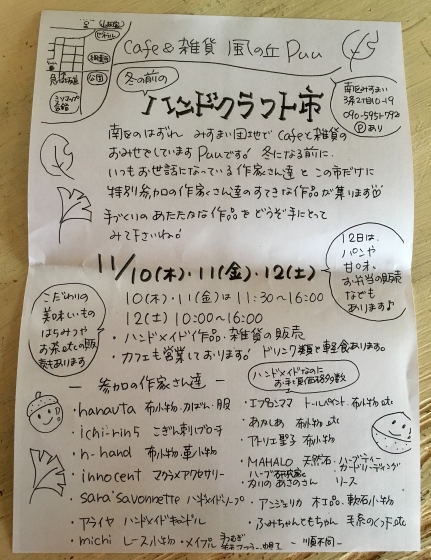 Cafe&雑貨 風の丘 Puu
公園
南区みすまい
Pあり
冬の前の
ハンドクラフト市
南区のはずれ みすまい団地で cafeと雑貨の
おみせでしています Puuです。冬になる前に、
いつもお世話になっている作家さん達と この市だけに
特別参加の作家さん達のすてきな作品が集ります
手づくりのあたたかな作品をどうぞ手にとって
みて下さいね♪
11/10(木)・11(金)・12(土)
12日は、
パンや
甘味、
お弁当の販売
なども
あります♪
10(木)・11(金)は 11:30〜16:00
12(土) 10:00〜16:00
・ハンドメイド作品・雑貨の販売
・カフェも営業しております。ドリンク類と軽食あります。
こだわりの
美味しいもの
はちみつや
お茶etcの販
売もあります
ハンドメイドなのに
お手ごろ価格多数
― 参加の作家さん達 ―
・hanauta 布小物・かばん・服
・ichi-rin5 こぎん刺しブローチ
・n-hand 布小物・革小物
・innocent マクラメアクセサリー
・sara savonnette ハンドメイドソープ
・アライヤ ハンドメイドキャンドル
・michi レース小物・メイプル
・エプロンママ トールペイント・布小物etc
・あかしあ 布小物etc
・アトリエ聖る 布小物
・MAHALO 天然石・ハーブティー カードリーディング
ハーブ研究家 リース
・アンジェリカ 木工品・軟石小物
・ふみちゃんともちゃん 毛糸のくつ下etc
― 順不同 ―